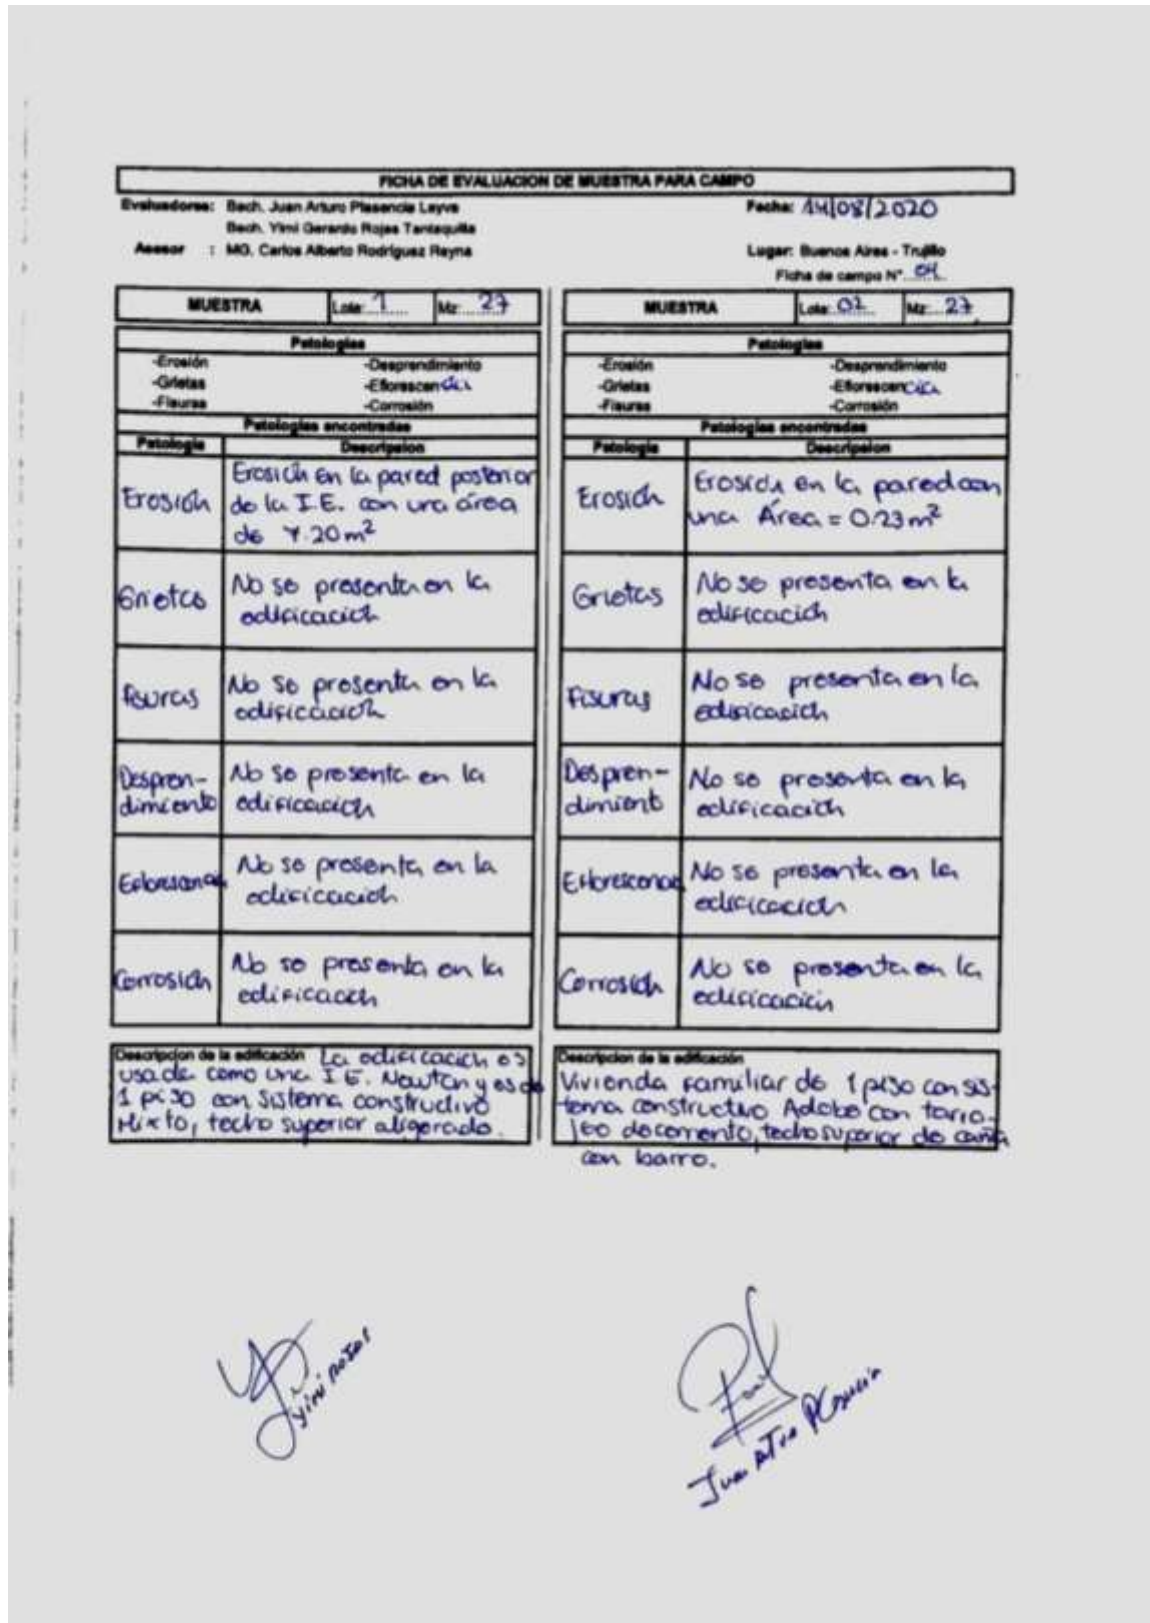 FICHA DE EVALUACION DE MUESTRA PARA CAMPO
Evaluadores: Bach. Juan Arturo Plasencia Leyva
Fecha: 14/08/2020
Bach. Yimi Gerardo Rojas Tantaquilla
Asesor : MG. Carlos Alberto Rodríguez Reyna
Lugar: Buenos Aires - Trujillo
Ficha de campo N° 04
MUESTRA
Lote: 1
Mz: 27
Patologias
-Erosión
-Desprendimiento
-Grietas
-Eflorescencia
-Fisuras
-Corrosión
Patologias encontradas
Patologia
Descripcion
Erosión
Erosión en la pared posterior
de la I.E. con una área
de 7.20 m²
Grietas
No se presenta en la
edificación
Fisuras
No se presenta en la
edificación
Despren-
dimiento
No se presenta en la
edificación
Eflorescencia
No se presenta en la
edificación
Corrosión
No se presenta en la
edificación
Descripcion de la edificación La edificación es
usada como una I.E. Newton y es de
1 piso con sistema constructivo
Mixto, techo superior aligerado.
MUESTRA
Lote: 02
Mz: 27
Patologias
-Erosión
-Desprendimiento
-Grietas
-Eflorescencia
-Fisuras
-Corrosión
Patologias encontradas
Patologia
Descripcion
Erosión
Erosión en la pared con
una Área = 0.23 m²
Grietas
No se presenta en la
edificación
Fisuras
No se presenta en la
edificación
Despren-
dimient
No se presenta en la
edificación
Eflorescencia
No se presenta en la
edificación
Corrosión
No se presenta en la
edificación
Descripcion de la edificación
Vivienda familiar de 1 piso con sis-
tema constructivo Adobe con tarra-
jeo de cemento, techo superior de caña
con barro.
Yimi Rojas
Juan